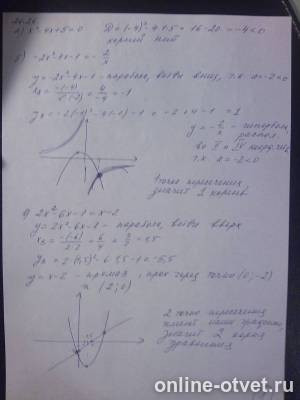 а) x²-4x+5=0 D=(-4)²-4·1·5=16-20=-4<0
корней нет
-2x²-4x-1=-2/x
y=2x²-4x-1-парабола, ветви вниз, т.к. a=-2<0
x₈=-(-4)/2·(-2)=4/-4=-1
y=-2/x - гипербола,
распол.
во II и IV коорд. че
т.к. a=-2<0
1 точка пересечения
значит 1 корень.
2x²-6x-1=x-2
y=2x²-6x-1-парабола, ветви вверх
x₈=-(-6)/2·2=6/4=3/2=1,5
y=x-2-прямая, прох. через точки (0;-2)
и (2;0)
2 точки пересечения
имеют наши графики,
значит 2 корня
уравнения
online-otvet.ru